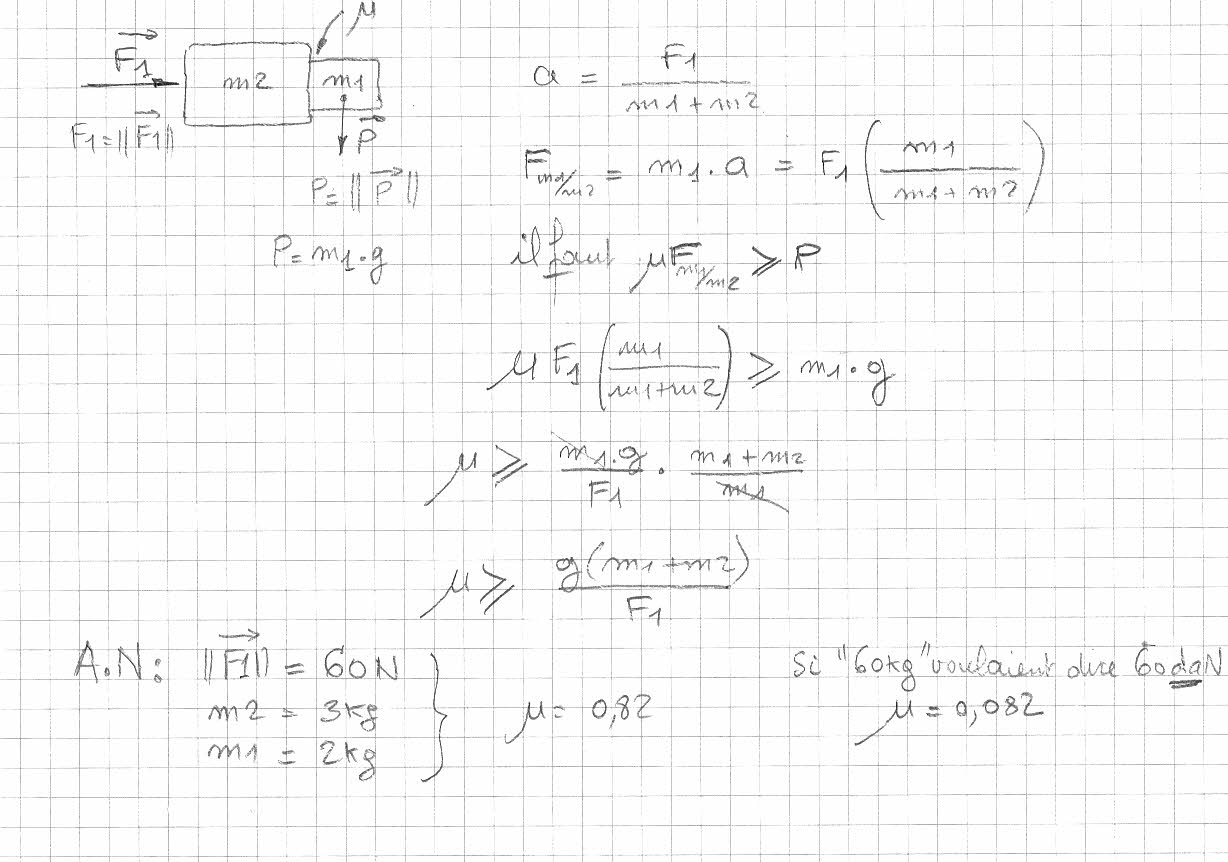 μ
F1
m2
m1
F1=||F1||
P
P=||P||
P=m1.g
a = F1/(m1+m2)
Fm1/m2 = m1.a = F1(m1/(m1+m2))
il faut μFm1/m2 ⩾ P
μF1(m1/(m1+m2)) ⩾ m1.g
μ ⩾ m1.g/F1 . (m1+m2)/m1
μ ⩾ g(m1+m2)/F1
A.N: ||F1|| = 60N
m2 = 3kg
m1 = 2kg
μ= 0,82
Si "60kg" voulaient dire 60daN
μ = 0,082